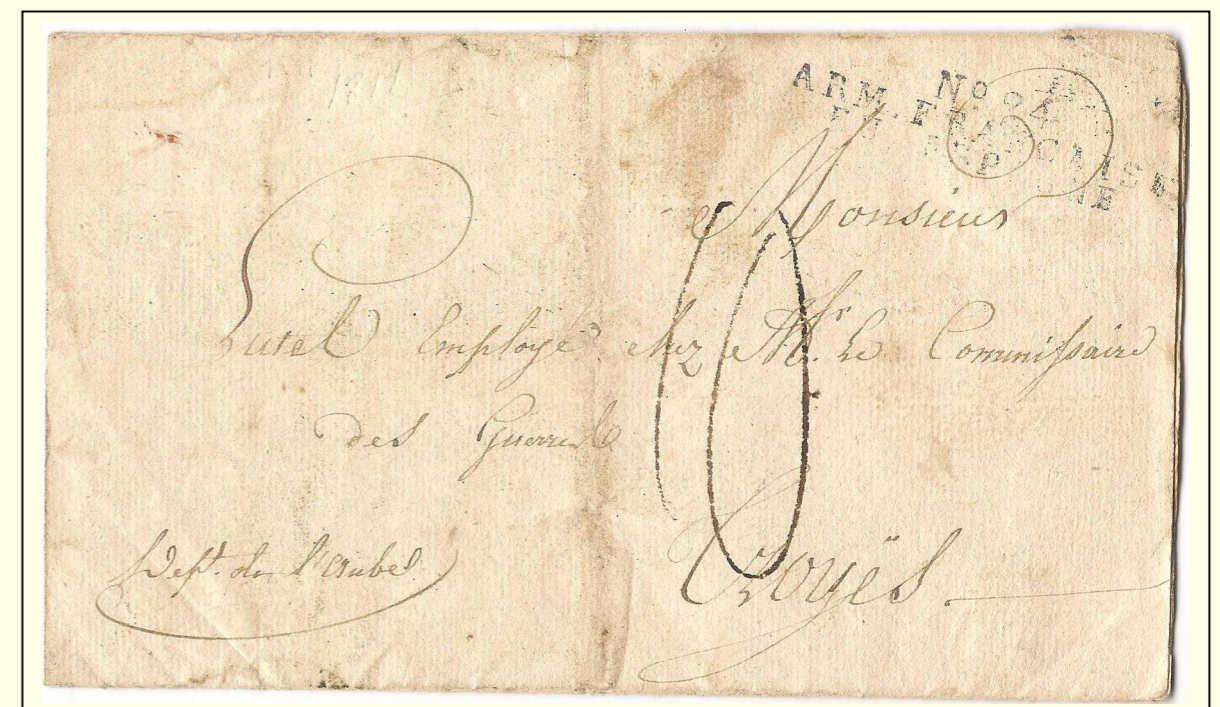 1811
No 24
ARM. FRANCAISE
EN ESPAGNE
Monsieur
Lutel Employé chez Mr. Le Commissaire
des Guerres
10
Troyës
Dept. de l'Aube